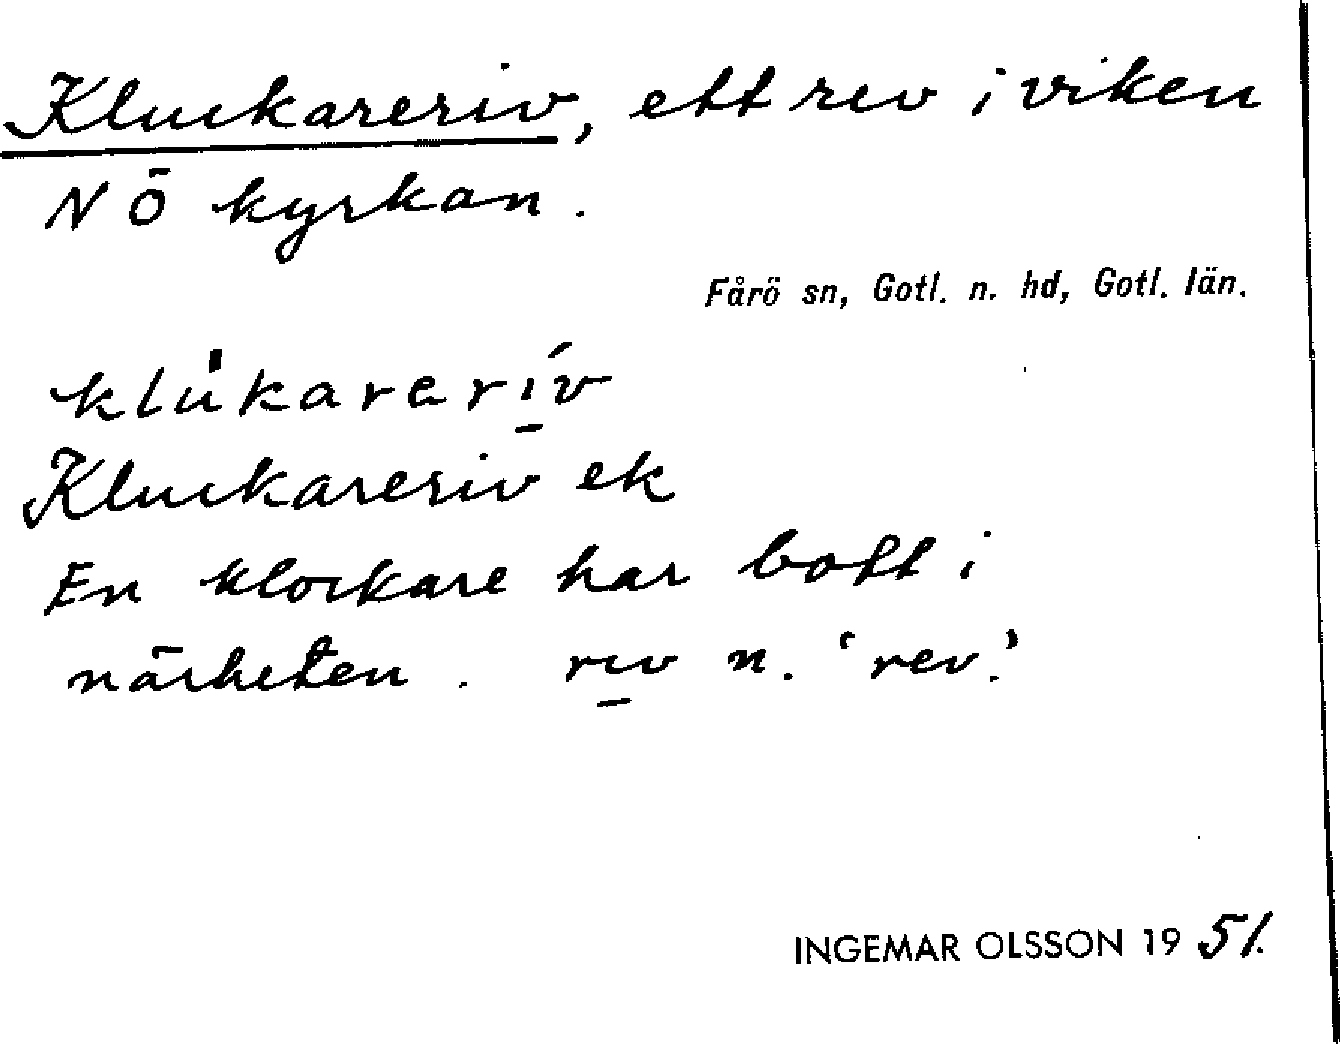 Kluckareriv, ett rev i viken
NÖ kyrkan.
Fårö sn, Gotl. n. hd, Gotl. län.
klùkarerí̲v
Kluckareriv ek
En klockare har bott i
närheten. ri̲v n. 'rev.'
INGEMAR OLSSON 1951.